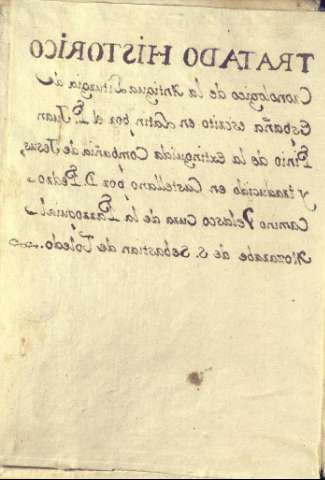 TRATADO HISTORICO
Cronologico de la Antigua Liturgia de
España escrito en Latin por el P. Juan
Pinio de la Extinguida Compañia de Jesus,
y traducido en Castellano por D. Pedro
Camino Velasco Cura de la Parroquial
Mozarabe de S. Sebastian de Toledo.